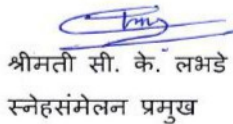 श्रीमती सी. के. लभडे
स्नेहसंमेलन प्रमुख